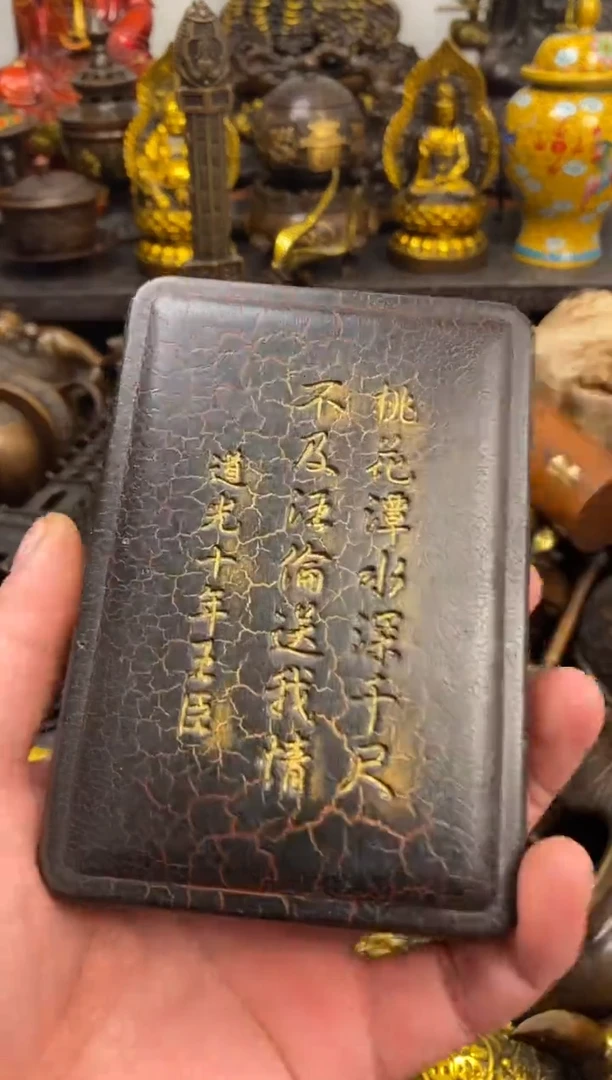 桃花潭水深千尺
不及汪倫送我情
道光十年臣